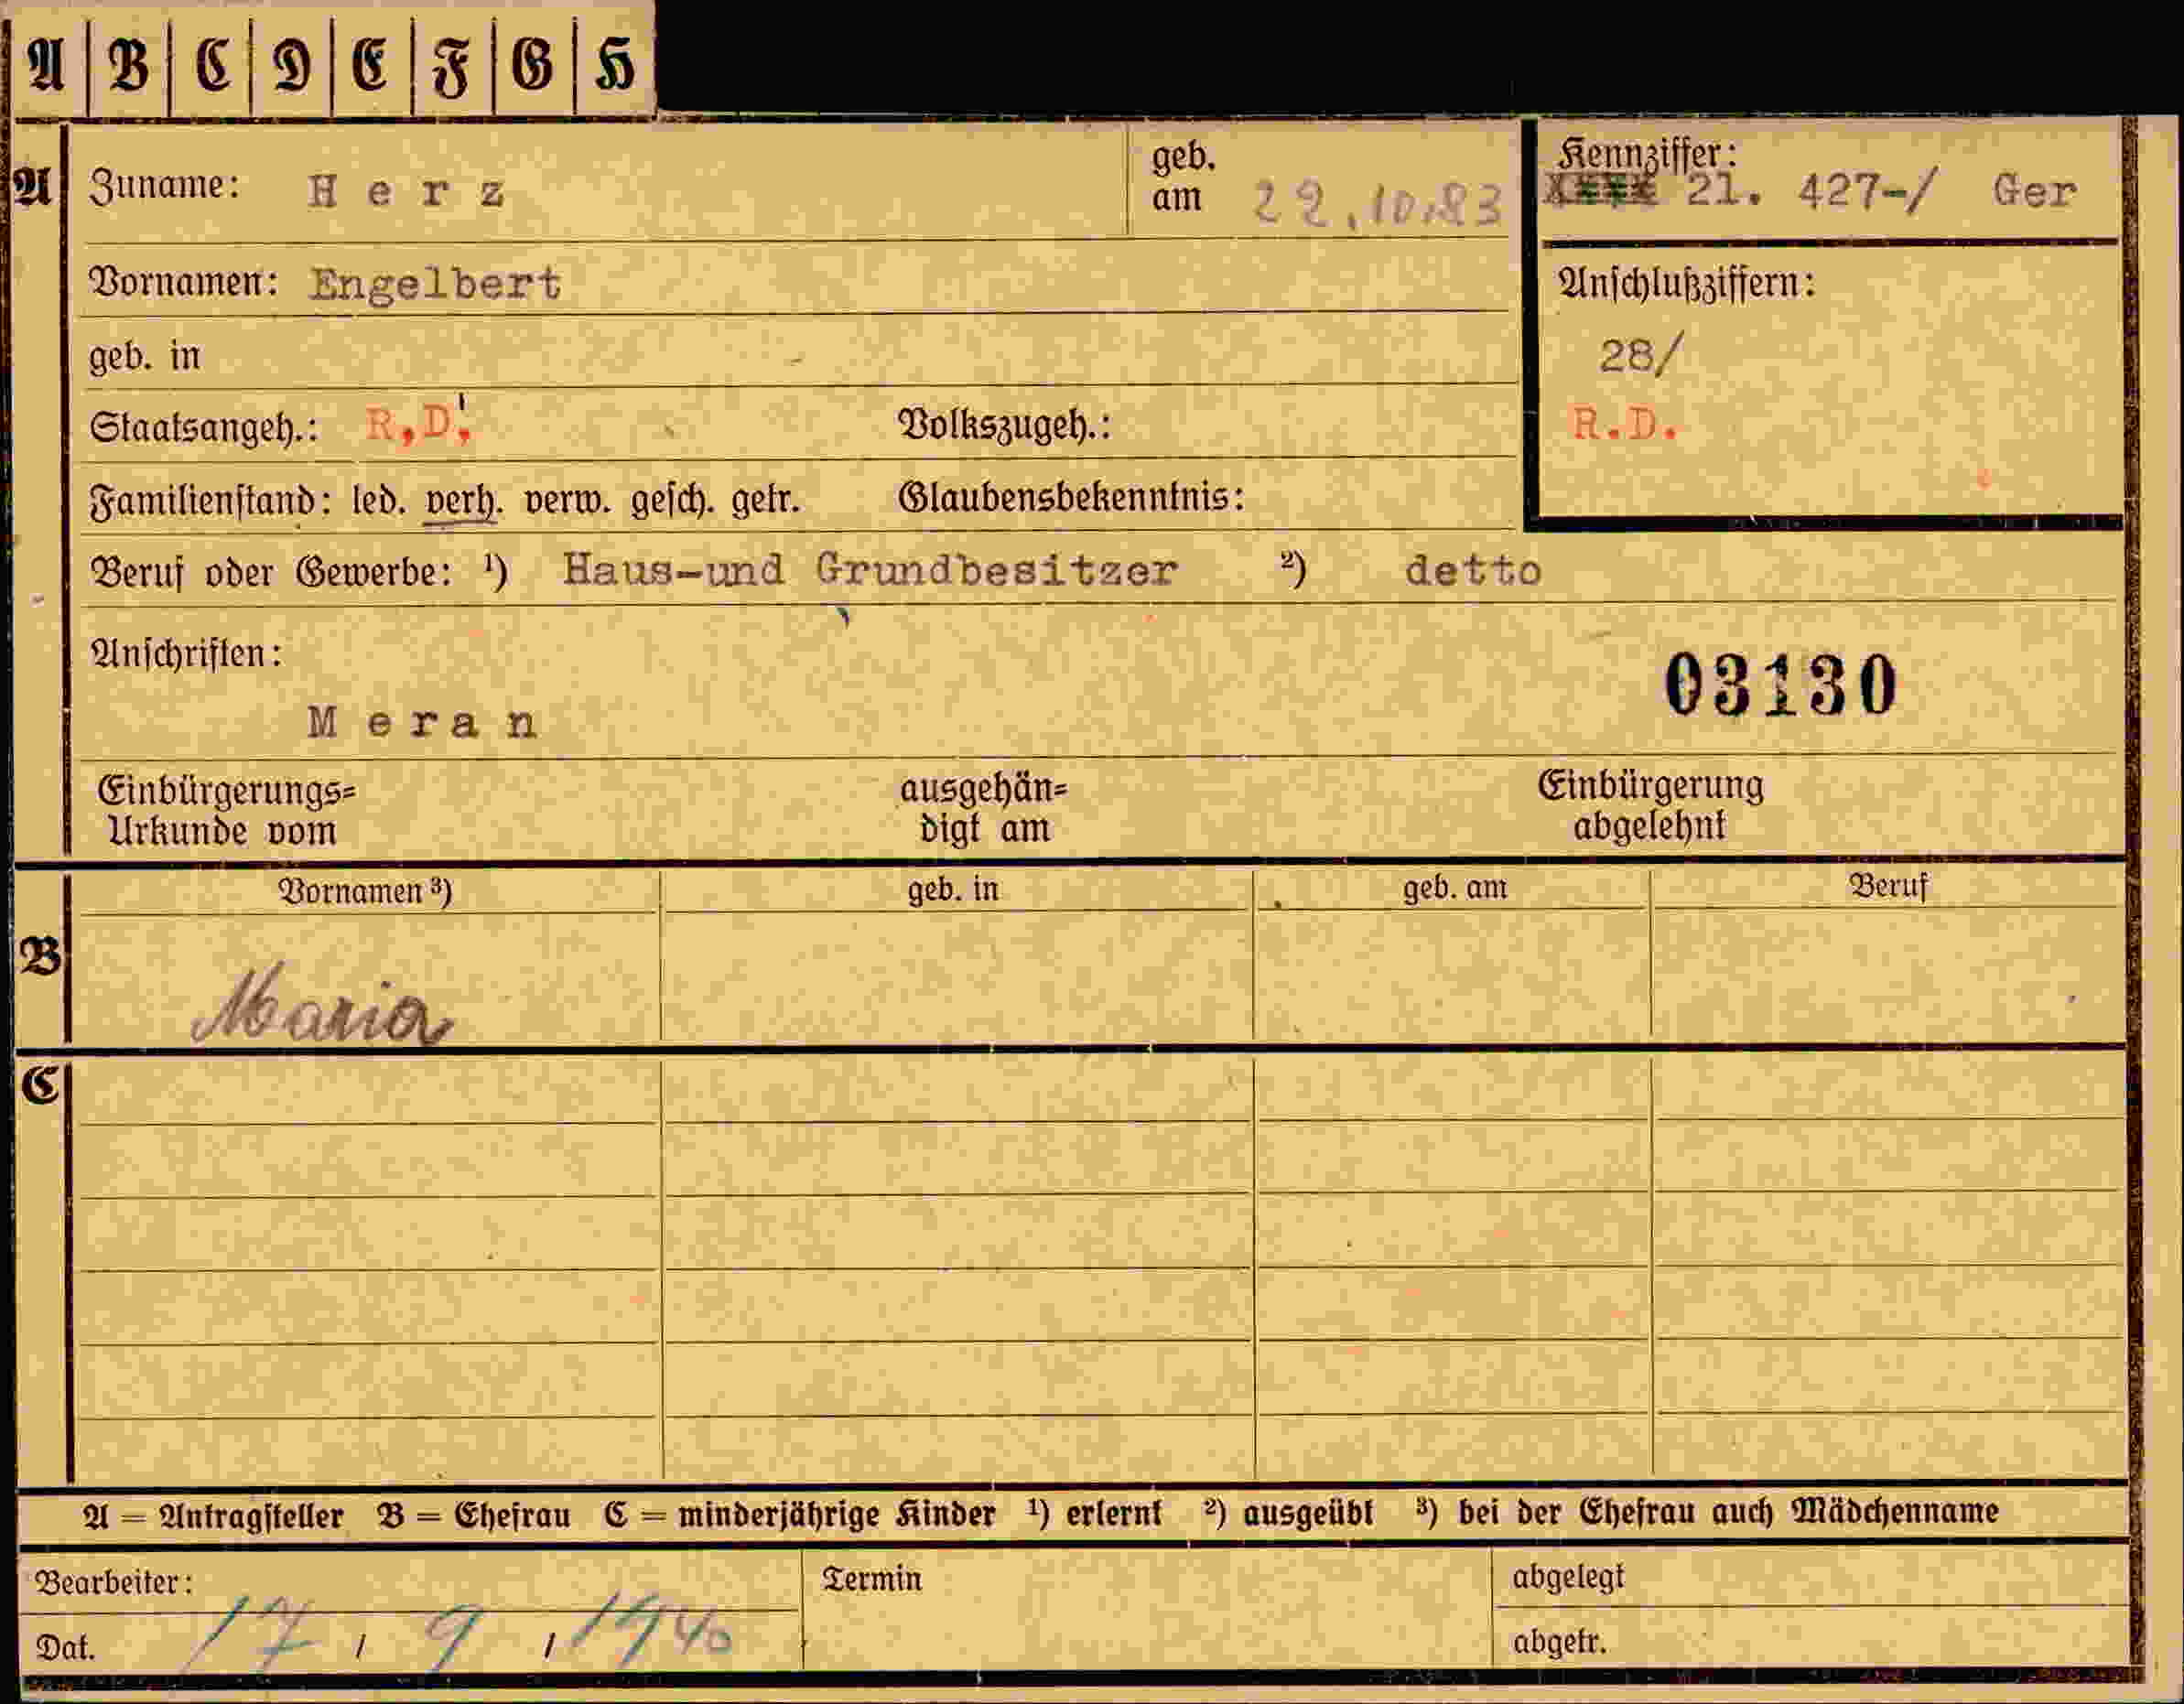 A B C D E F G H
A Zuname: Herz geb. am 22.10.83 Kennziffer: 21. 427-/ Ger
Vornamen: Engelbert Anschlußziffern:
geb. in 28/
Staatsangeh.: R.D. Volkszugeh.: R.D.
Familienstand: led. verh. verw. gesch. getr. Glaubensbekenntnis:
Beruf oder Gewerbe: ¹) Haus-und Grundbesitzer ²) detto
Anschriften: 03130
Meran
Einbürgerungs= ausgehän= Einbürgerung
Urkunde vom digt am abgelehnt
Vornamen ³) geb. in geb. am Beruf
B
Maria
C
A = Antragsteller B = Ehefrau C = minderjährige Kinder ¹) erlernt ²) ausgeübt ³) bei der Ehefrau auch Mädchenname
Bearbeiter: Termin abgelegt
Dat. 17 / 9 / 1940 abgetr.